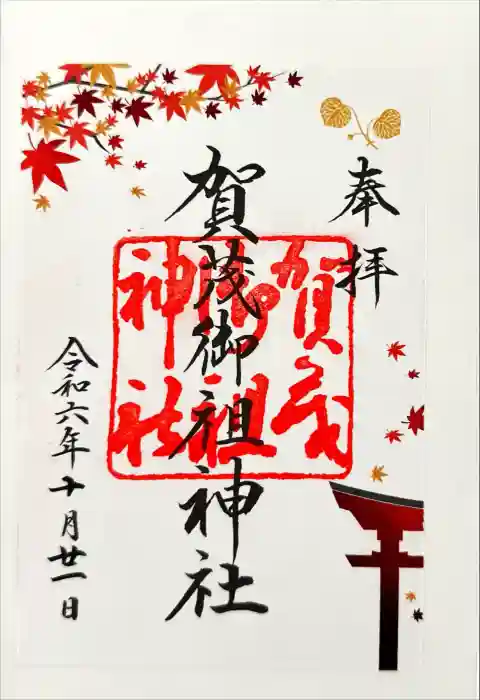 奉拝
賀茂御祖神社
賀茂
御祖
神社
令和六年十月廿一日